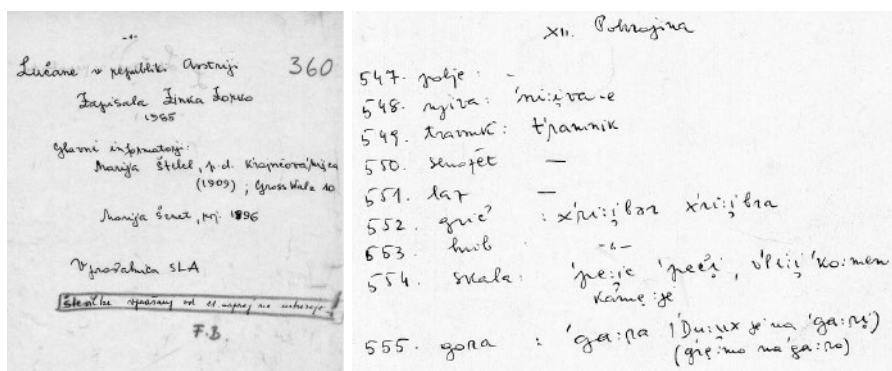 -1-
Lučane v republiki Avstriji 360
Zapisala Zinka Zorko
1985
Glavni informatorji:
Marija Štelcl, p.d. Krajnčova Mijca
(1909); Gross Walz 10
Marija Šenet, roj. 1896
Vprašalnica SLA
številke vprašanj od 11. naprej ne ustrezajo!
F.B.
XII. Pokrajina
547. polje: -
548. njiva: 'ni:i̯va -e
549. travnik: t'raunik
550. senožet —
551. laz —
552. grič : x'ri:i̯bər x'ri:i̯bra
553. hrib -"-
554. skala: 'pe:ič 'peči, v'eli:i̯ 'ko:mən
kame:je
555. gora : 'ga:ra ('Du:ux je na 'ga:ri)
(gre:mo na 'ga:ro)